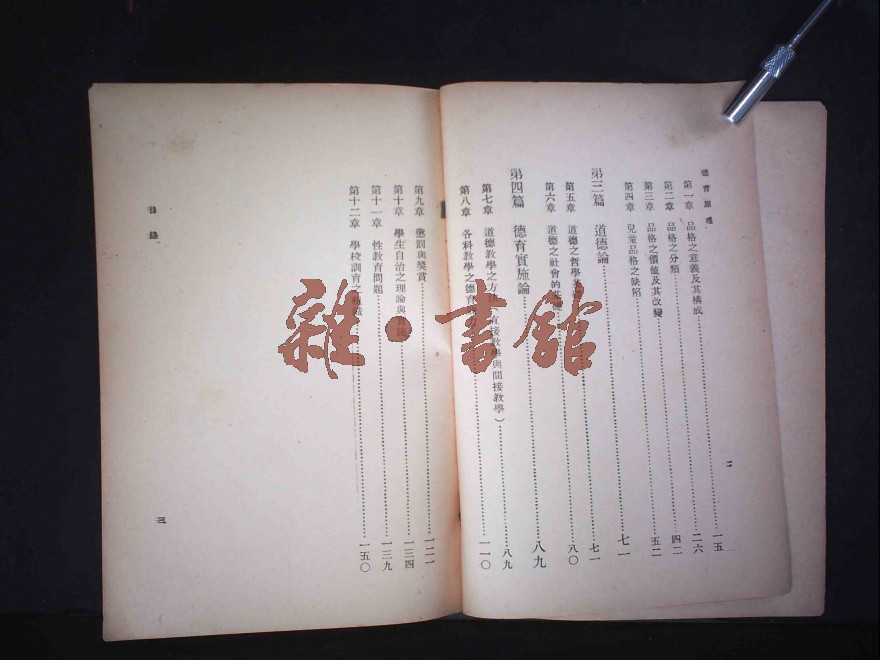 德育原理
第一章 品格之意義及其構成……一五
第二章 品格之分類……二六
第三章 品格之價值及其改變……四二
第四章 兒童品格之缺陷……五二
第三篇 道德論……七一
第五章 道德之哲學……七一
第六章 道德之社會的基……八〇
第四篇 德育實施論……八九
第七章 道德教學之方法(直接教學與間接教學)……八九
第八章 各科教學之德育……一一〇
二
目錄
第九章 懲罰與獎賞……一二一
第十章 學生自治之理論與實施……一三四
第十一章 性教育問題……一三九
第十二章 學校訓育之……一五〇
三
雜·書館